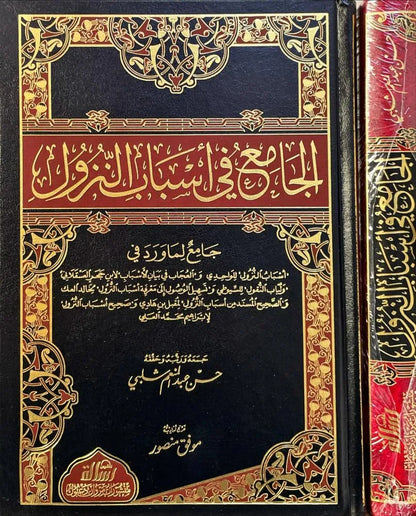 الجامع في أسباب النزول
جامع لما ورد في
أسباب النزول للواحدي والعجاب في بيان الأسباب لابن حجر العسقلاني
ولباب النقول للسيوطي وتسهيل الوصول إلى معرفة أسباب النزول لخالد العك
والصحيح المسند من أسباب النزول لمقبل بن هادي وصحيح أسباب النزول
لإبراهيم محمد العلي
جمعه ورتبه وحققه
حسن عبد المنعم شلبي
موفق منصور
الرسالة
حسن عبد المنعم شلبي
الجامع في أسباب النزول
الرسالة